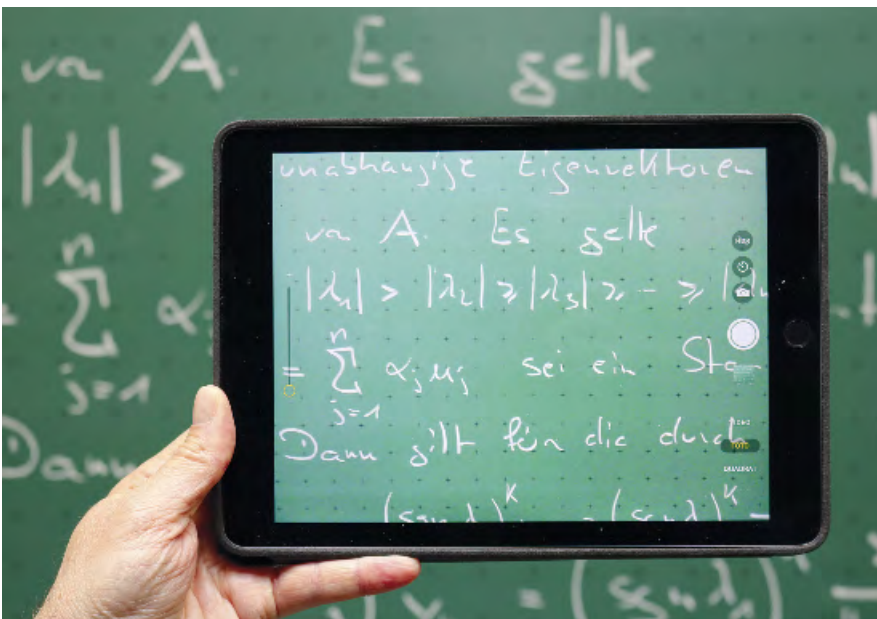 va A. Es gelte
|λ₁| >
n
Σ α
j=1
Dann
unabhängige Eigenvektoren
va A. Es gelte
|λ₁| > |λ₂| ≥ |λ₃| ≥ - ≥ |λn
= Σ αⱼ uⱼ sei ein Sta
n
j=1
Dann gilt für die durch
(sgn λ)ᴷ = (sgn λ)ᴷ
FOTO
QUADRAT
= (sgn λ₁)